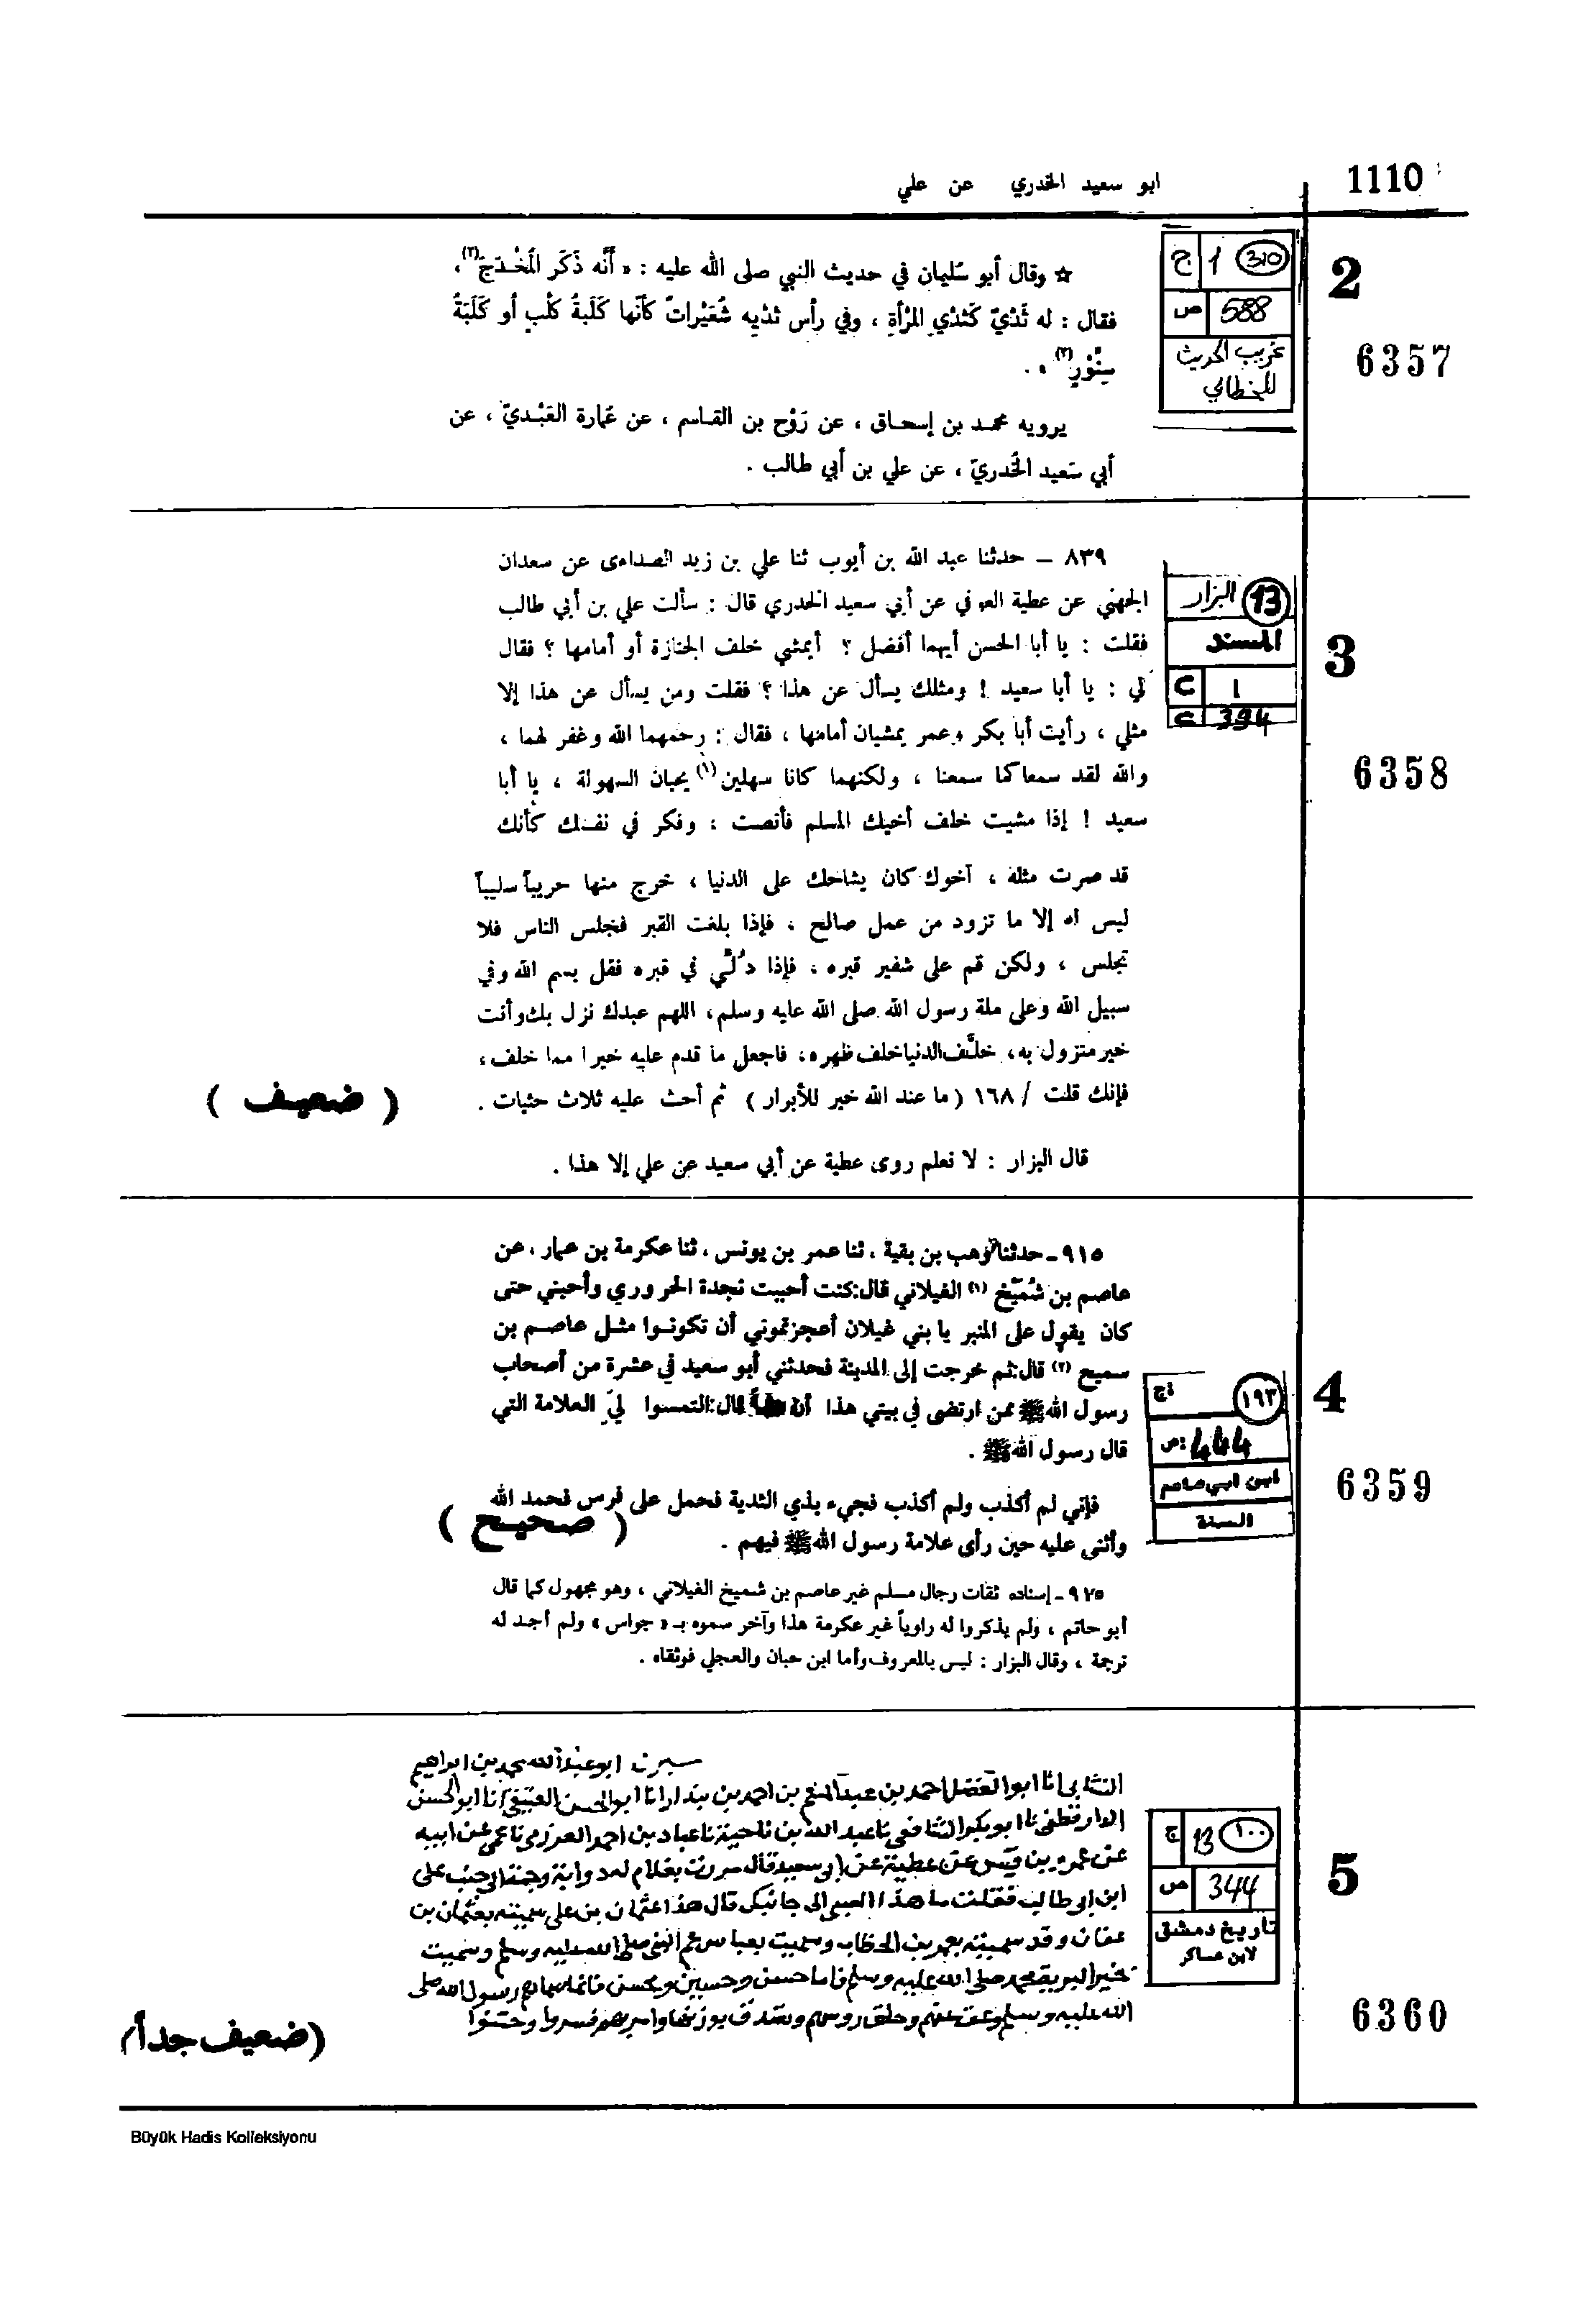 1110
ابو سعيد الخدري عن علي
2
6357
310 1 ج
588 ص
غريب الحديث
للخطابي
☆ وقال أبو سُليمان في حديث النبي صلى الله عليه : « أنَّه ذَكَر المُخْدَجَ(٢)،
فقال : له ثَدْيٌ كَثَدْيِ المَرْأةِ ، وفي رأس ثدْيِه شُعَيْراتٌ كأنّها كَلَبةُ كَلْبٍ أو كَلَبَةُ
سِنَّوْرٍ(٣) » .
يرويه محمد بن إسحاق ، عن رَوْح بن القاسم ، عن عُمارة العَبْديّ ، عن
أبي سَعيد الخُدريّ ، عن علي بن أبي طالب .
3
6358
13 البزار
المسند
1
394
٨٣٩ – حدثنا عبد الله بن أيوب ثنا علي بن زيد الصداءى عن سعدان
الجهني عن عطية العوفي عن أبي سعيد الخدري قال : سألت علي بن أبي طالب
فقلت : يا أبا الحسن أيهما أفضل ؟ أيمشي خلف الجنازة أو أمامها ؟ فقال
لي : يا أبا سعيد ! ومثلك يسأل عن هذا ؟ فقلت ومن يسأل عن هذا إلا
مثلي ، رأيت أبا بكر وعمر يمشيان أمامها ، فقال : رحمهما الله وغفر لهما ،
والله لقد سمعا كما سمعنا ، ولكنهما كانا سهلين(١) يحبان السهولة ، يا أبا
سعيد ! إذا مشيت خلف أخيك المسلم فأنصت ، وفكر في نفسك كأنك
قد صرت مثله ، أخوك كان يشاحك على الدنيا ، خرج منها حريباً سليباً
ليس له إلا ما تزود من عمل صالح ، فإذا بلغت القبر فجلس الناس فلا
تجلس ، ولكن قم على شفير قبره ، فإذا دُلِّي في قبره فقل بسم الله وفي
سبيل الله وعلى ملة رسول الله صلى الله عليه وسلم، اللهم عبدك نزل بك وأنت
خير منزول به، خلَّف الدنيا خلف ظهره، فاجعل ما قدم عليه خيرا مما خلف،
فإنك قلت / ١٦٨ ( ما عند الله خير للأبرار ) ثم أحث عليه ثلاث حثيات .
( ضعيف )
قال البزار : لا نعلم روى عطية عن أبي سعيد عن علي إلا هذا .
4
6359
١٩٣ ج
ص: 444
ابن ابي عاصم
السنة
٩١٥ – حدثنا وهب بن بقية ، ثنا عمر بن يونس ، ثنا عكرمة بن عمار ، عن
عاصم بن شُمَيْخ (١) الغيلاني قال: كنت أحببت نجدة الحروري وأحبني حتى
كان يقول على المنبر يا بني غيلان أعجزتموني أن تكونوا مثل عاصم بن
سميع (٢) قال: ثم خرجت إلى المدينة فحدثني أبو سعيد في عشرة من أصحاب
رسول الله ﷺ ممن ارتضى في بيتي هذا أن علياً قال: التمسوا لي العلامة التي
قال رسول الله ﷺ .
فإني لم أكذب ولم أكذب فجيء بذي الثدية فحمل على فرس فحمد الله
( صحيح )
وأثنى عليه حين رأى علامة رسول الله ﷺ فيهم .
٩٢٥ – إسناده ثقات رجال مسلم غير عاصم بن شميخ الغيلاني ، وهو مجهول كما قال
أبو حاتم ، ولم يذكروا له راوياً غير عكرمة هذا وآخر سموه بـ « جواس » ولم أجد له
ترجمة ، وقال البزار : ليس بالمعروف وأما ابن حبان والعجلي فوثقاه .
5
6360
١٠٠ 13 ج
344 ص
تاريخ دمشق
لابن عساكر
ابو عبد الله محمد بن ابراهيم
انا ابو الفضل احمد بن عبد المنعم بن احمد بن بندار انا ابو الحسن العتيقي انا ابو الحسن
الدارقطني نا ابو بكر الشافعي نا عبد الله بن ناجية نا عباد بن احمد العرزمي نا عمي عن ابيه
عن عمرو بن قيس عن عطية عن ابي سعيد قال مررت بغلام له ذوابة وجمة الى جنب علي
ابن ابي طالب فقلت ما هذا الصبي الى جانبك قال هذا عثمان بن علي سميته بعثمان بن
عفان وقد سميت بعمر بن الخطاب وسميت بعباس عم النبي صلى الله عليه وسلم وسميت
بخير البرية محمد صلى الله عليه وسلم فاما حسن وحسين ومحسن فانما سماهم رسول الله صلى
الله عليه وسلم وعق عنهم وحلق روسهم وتصدق بوزنها وامر بهم فسروا وختنوا
(ضعيف جدا)
Büyük Hadis Kolleksiyonu